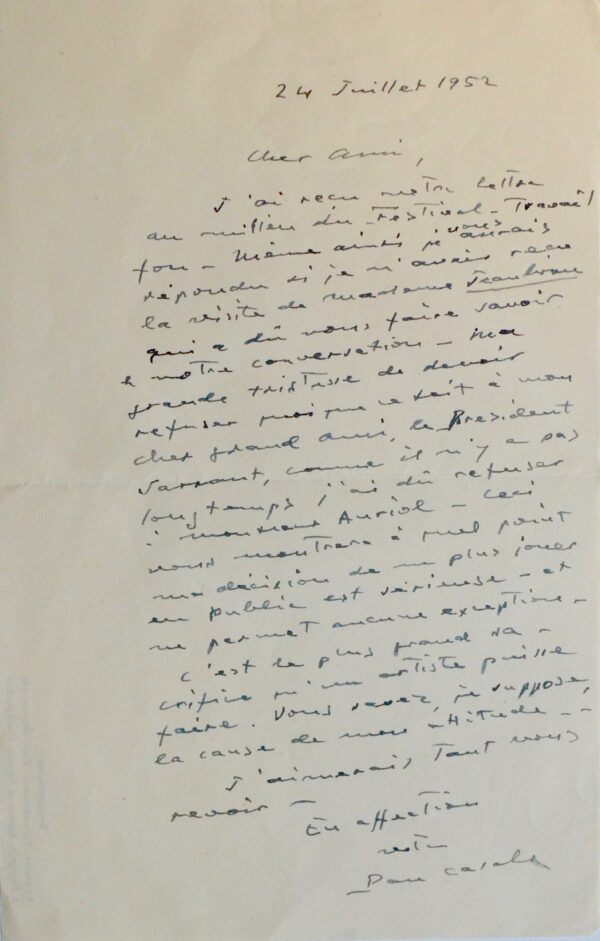 24 Juillet 1952
Cher Ami,
J'ai reçu votre lettre
au milieu du Festival - Travail
fou - Même ainsi je vous aurais
répondu si je n'avais reçu
la visite de madame
qui a dû vous faire savoir
notre conversation - Ma
grande tristesse de devoir
refuser quoique ce soit à mon
cher grand ami, le Président
Sarraut, comme il n'y a pas
longtemps j'ai dû refuser
à monsieur Auriol - Ceci
vous montrera à quel point
ma décision de ne plus jouer
en public est sérieuse - et
ne permet aucune exception -
C'est le plus grand sa-
crifice qu'un artiste puisse
faire. Vous savez, je suppose,
la cause de mon attitude - -
J'aimerais tant vous
revoir -
En affection
votre
Pau Casals